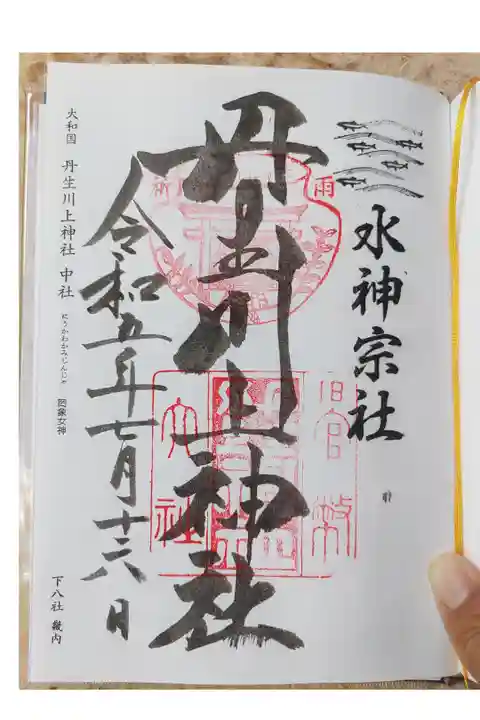 水神宗社
丹生川上神社
令和五年七月十六日
雨
旧官幣
大社
大和国 丹生川上神社 中社 にうかわかみじんじゃ 罔象女神
下八社 畿内